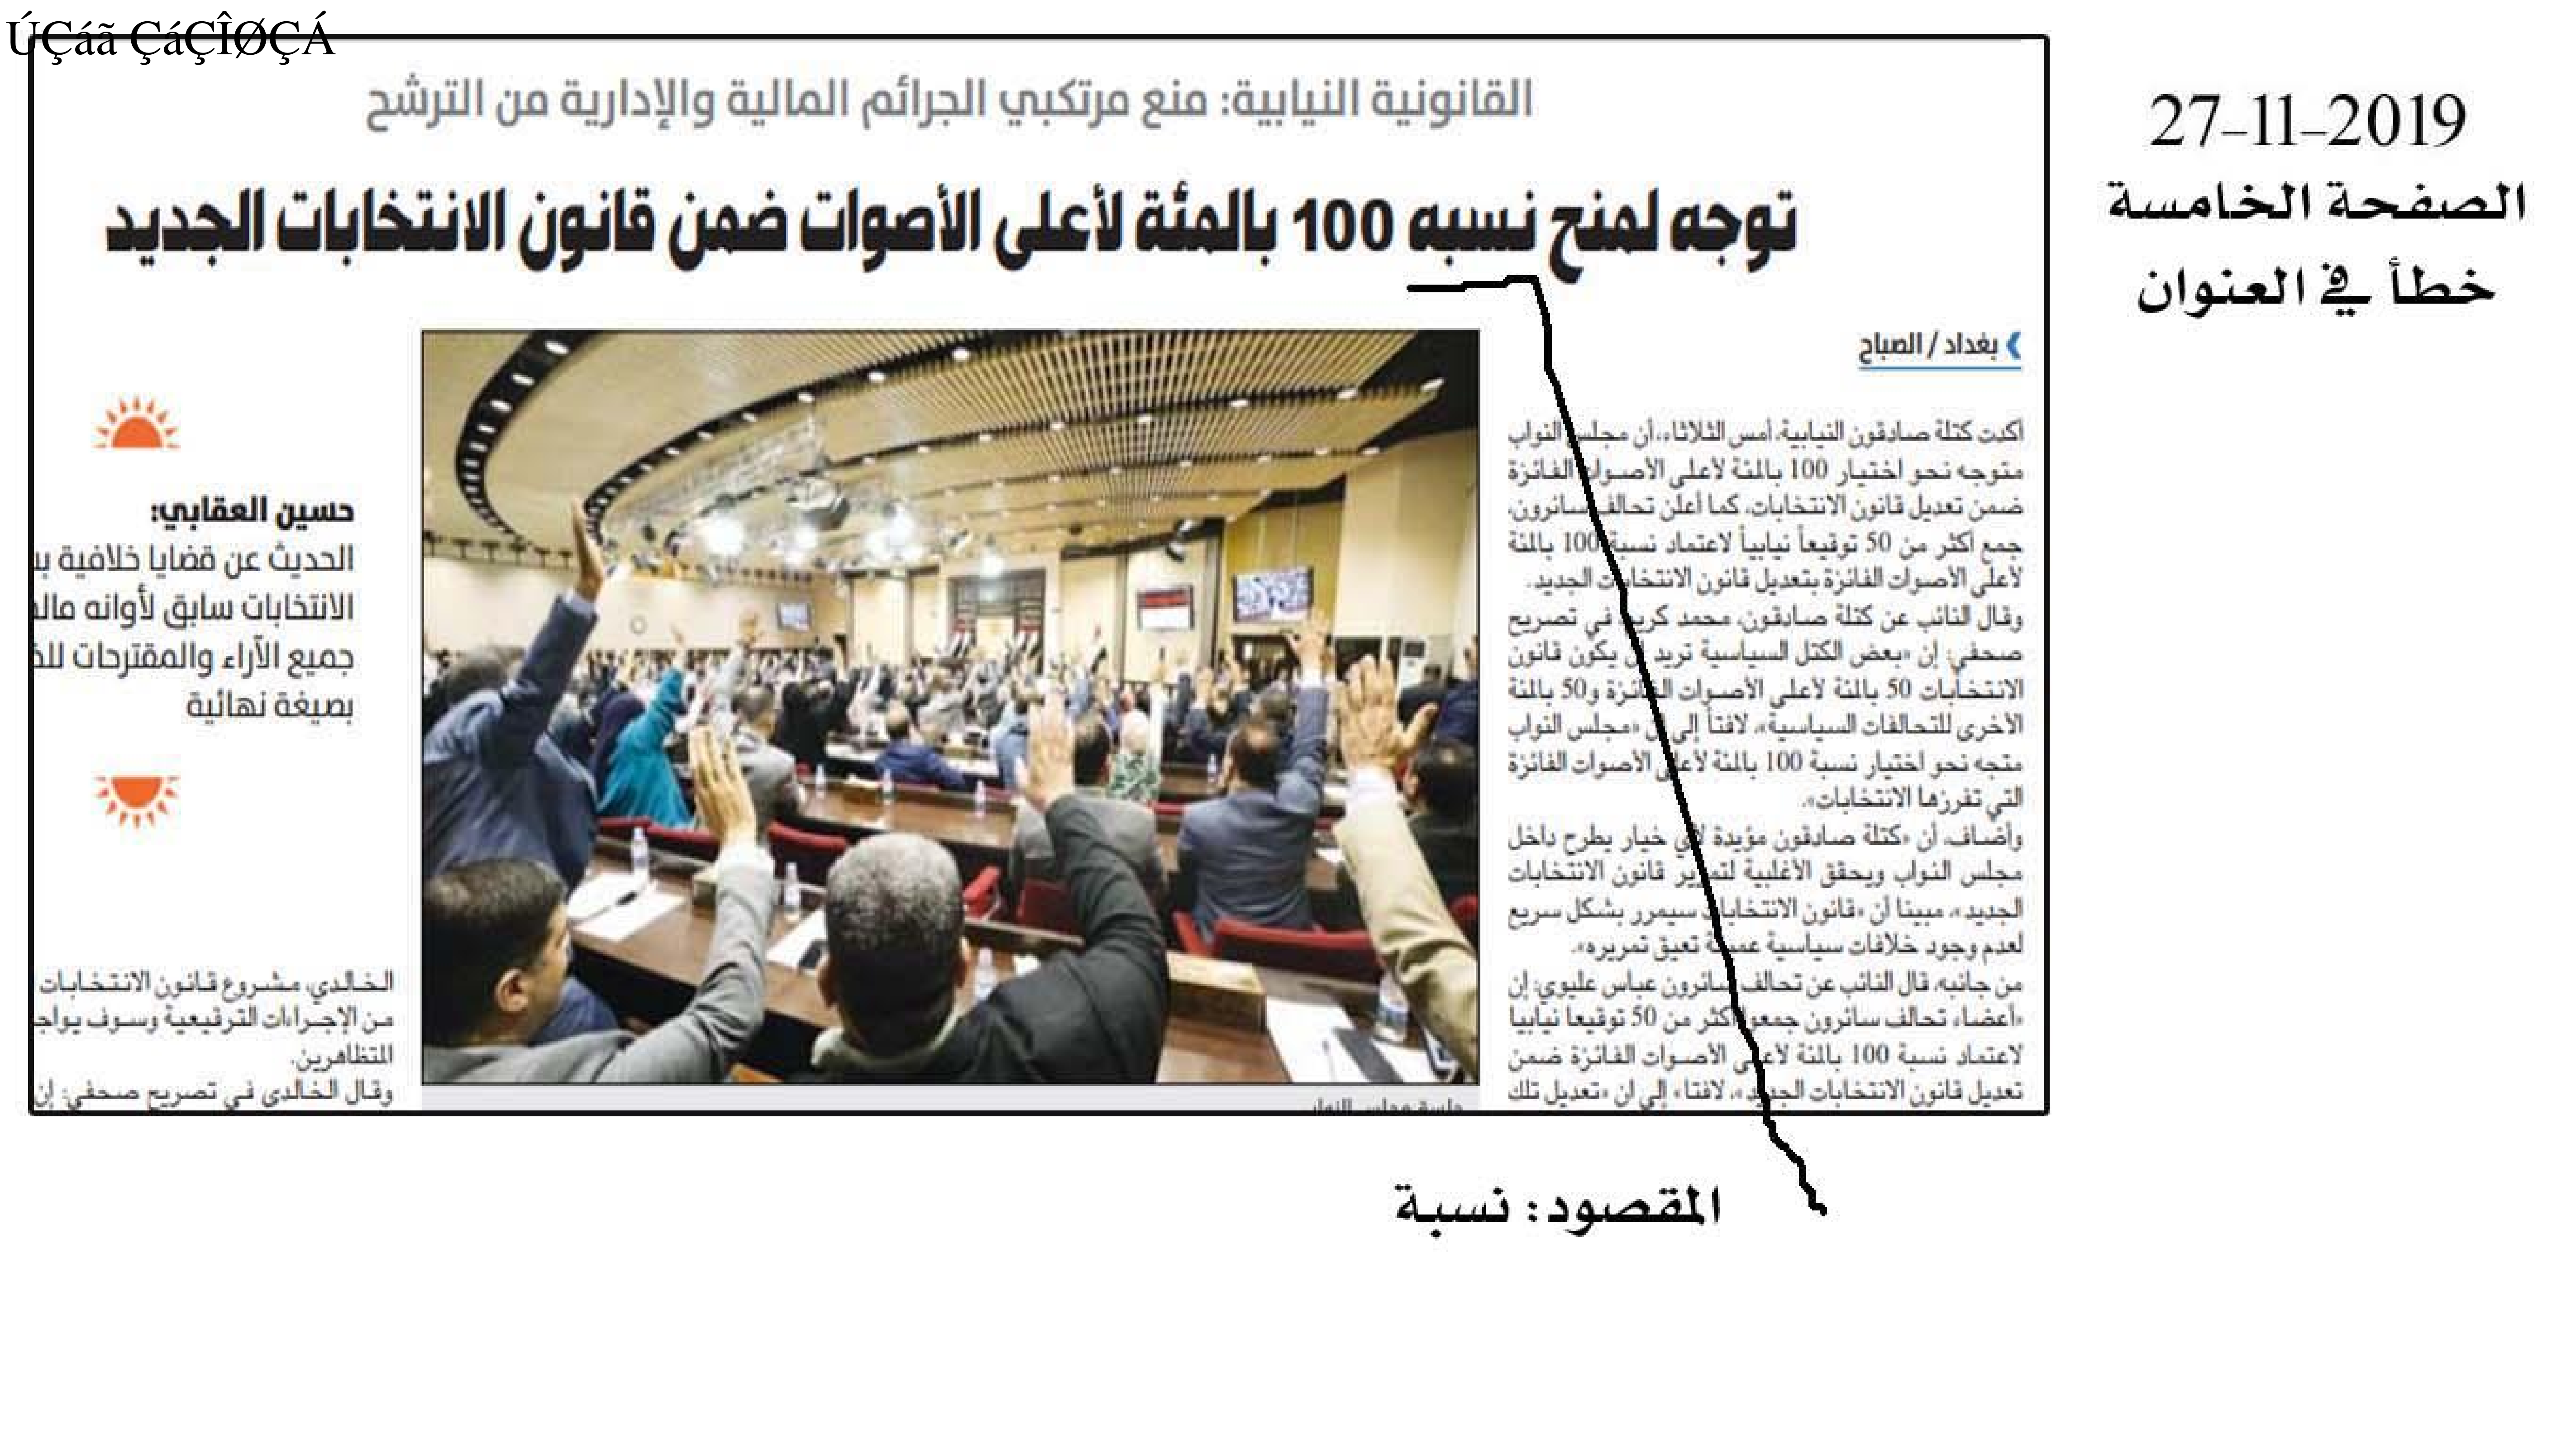 ÚÇáã ÇáÇÎØÇÁ
27-11-2019
الصفحة الخامسة
خطأ في العنوان
القانونية النيابية: منع مرتكبي الجرائم المالية والإدارية من الترشح
توجه لمنح نسبه 100 بالمئة لأعلى الأصوات ضمن قانون الانتخابات الجديد
بغداد / الصباح
أكدت كتلة صادقون النيابية، أمس الثلاثاء، أن مجلس النواب
متوجه نحو اختيار 100 بالمئة لأعلى الأصوات الفائزة
ضمن تعديل قانون الانتخابات، كما أعلن تحالف سائرون،
جمع أكثر من 50 توقيعاً نيابياً لاعتماد نسبة 100 بالمئة
لأعلى الأصوات الفائزة بتعديل قانون الانتخابات الجديد.
وقال النائب عن كتلة صادقون، محمد كريم في تصريح
صحفي: إن «بعض الكتل السياسية تريد أن يكون قانون
الانتخابات 50 بالمئة لأعلى الأصوات الفائزة و50 بالمئة
الأخرى للتحالفات السياسية»، لافتاً إلى أن «مجلس النواب
متجه نحو اختيار نسبة 100 بالمئة لأعلى الأصوات الفائزة
التي تفرزها الانتخابات».
وأضاف، أن «كتلة صادقون مؤيدة لأي خيار يطرح داخل
مجلس النواب ويحقق الأغلبية لتمرير قانون الانتخابات
الجديد»، مبينا أن «قانون الانتخابات سيمرر بشكل سريع
لعدم وجود خلافات سياسية عميقة تعيق تمريره».
من جانبه، قال النائب عن تحالف سائرون عباس عليوي: إن
«أعضاء تحالف سائرون جمعوا أكثر من 50 توقيعا نيابيا
لاعتماد نسبة 100 بالمئة لأعلى الأصوات الفائزة ضمن
تعديل قانون الانتخابات الجديد»، لافتا» إلى ان «تعديل تلك
جلسة مجلس النواب
حسين العقابي:
الحديث عن قضايا خلافية
الانتخابات سابق لأوانه
جميع الآراء والمقترحات
بصيغة نهائية
الخالدي، مشروع قانون الانتخابات
من الإجراءات الترقيعية وسوف
المتظاهرين.
وقال الخالدي في تصريح صحفي: إن
المقصود: نسبة